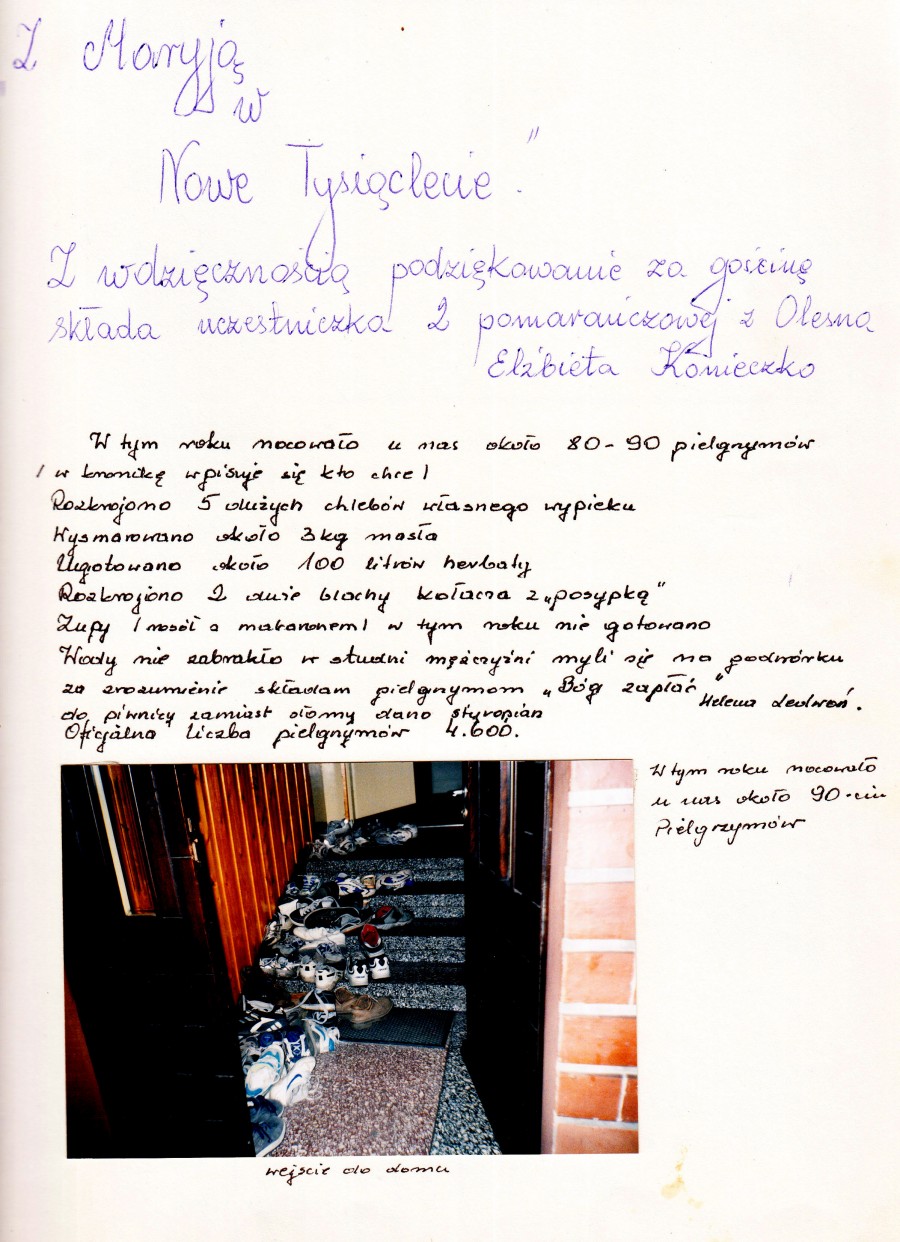 Z Maryją
w
Nowe Tysiąclecie."
Z wdzięcznością podziękowanie za gościnę
składa uczestniczka 2 pomarańczowej z Olesna
Elżbieta Konieczko
W tym roku nocowało u nas około 80-90 pielgrzymów
/ w kronikę wpisuje się kto chce /
Rozkrojono 5 dużych chlebów własnego wypieku
Wysmarowano około 3 kg masła
Ugotowano około 100 litrów herbaty
Rozkrojono 2 duże blachy kołacza z „posypką"
Zupy / rosół z makaronem / w tym roku nie gotowano
Wody nie zabrakło w studni mężczyźni myli się na podwórku
za zrozumienie składam pielgrzymom „Bóg zapłać"
Helena
do piwnicy zamiast słomy dano styropian
Oficjalna liczba pielgrzymów 4.600.
W tym roku nocowało
u nas około 90-ciu
Pielgrzymów
wejście do domu